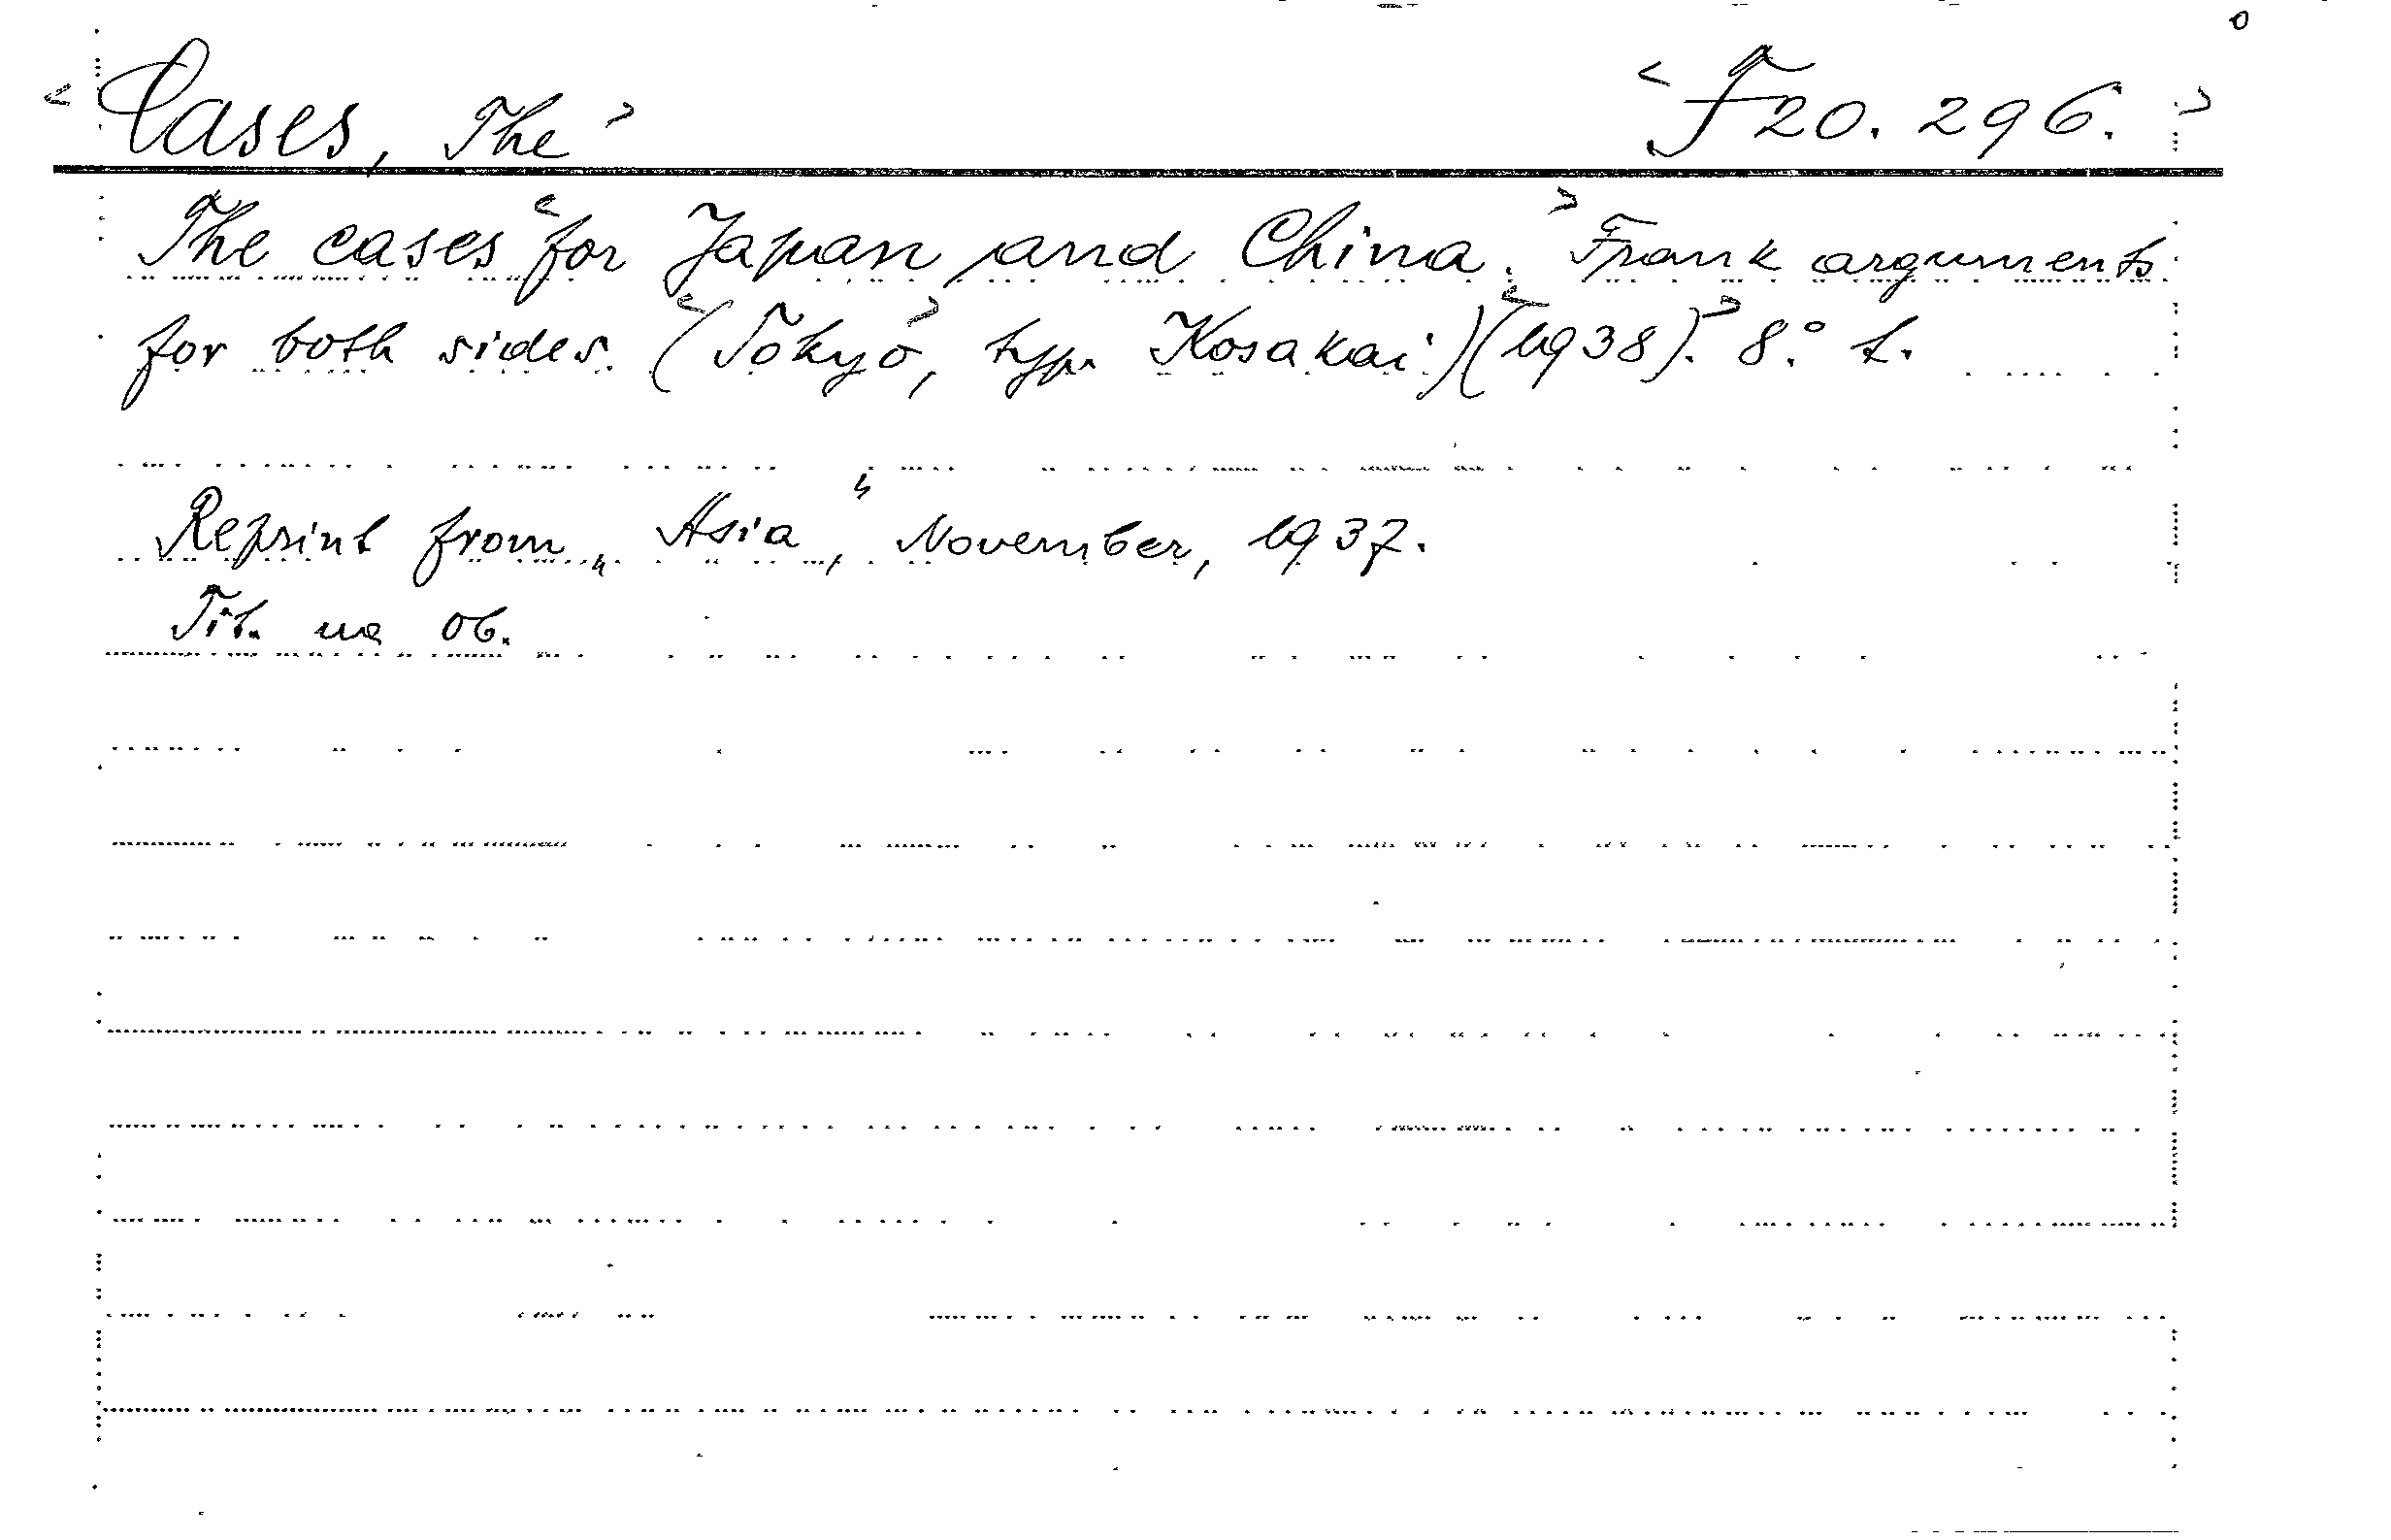 <Cases, The> <F20.296.>
The cases <for Japan and China.> Frank arguments
for both sides. (<Tōkyō>, typ. Kosakai) <(1938).> 8.° t.
Reprint from „Asia”, November, 1937.
Tit. na ob.